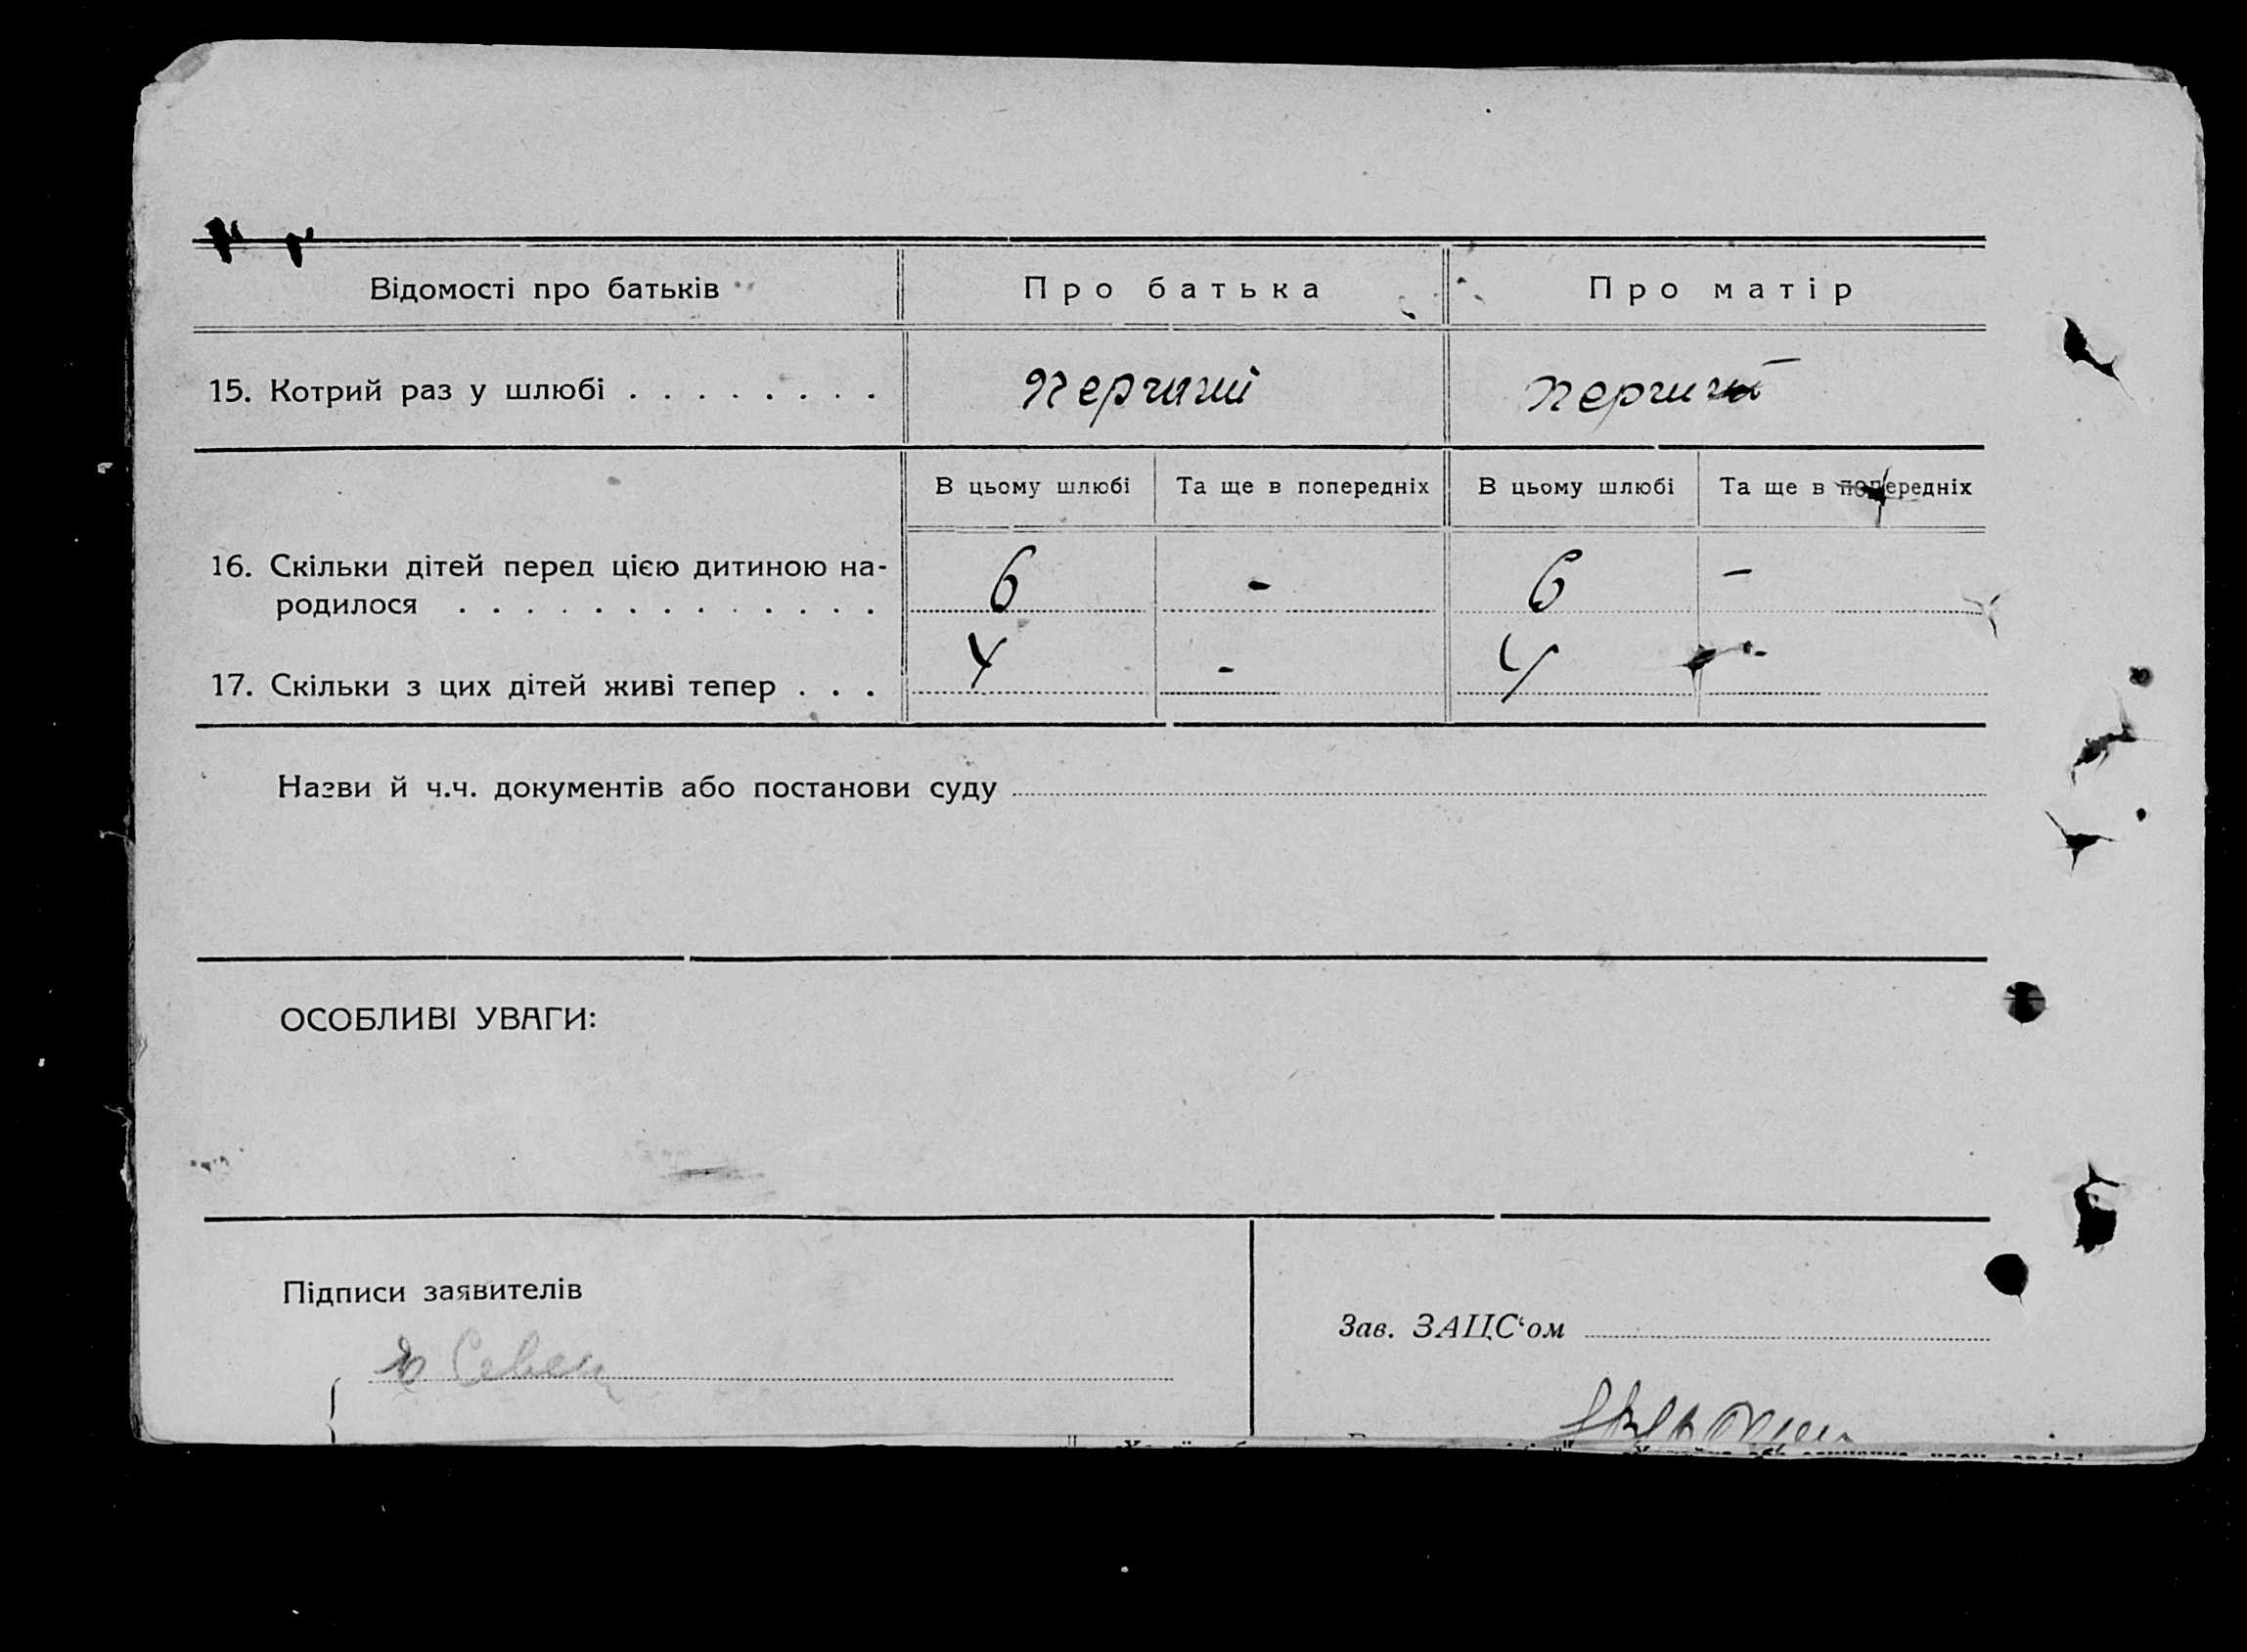 Відомості про батьків Про батька Про матір
15. Котрий раз у шлюбі . . . . . . . . перший перший
В цьому шлюбі Та ще в попередніх В цьому шлюбі Та ще в попередніх
16. Скільки дітей перед цією дитиною на-
родилося . . . . . . . . . . . . . 6 - 6 -
17. Скільки з цих дітей живі тепер . . . 4 - 4 -
Назви й ч.ч. документів або постанови суду
ОСОБЛИВІ УВАГИ:
Підписи заявителів
Зав. ЗАЦС‘ом